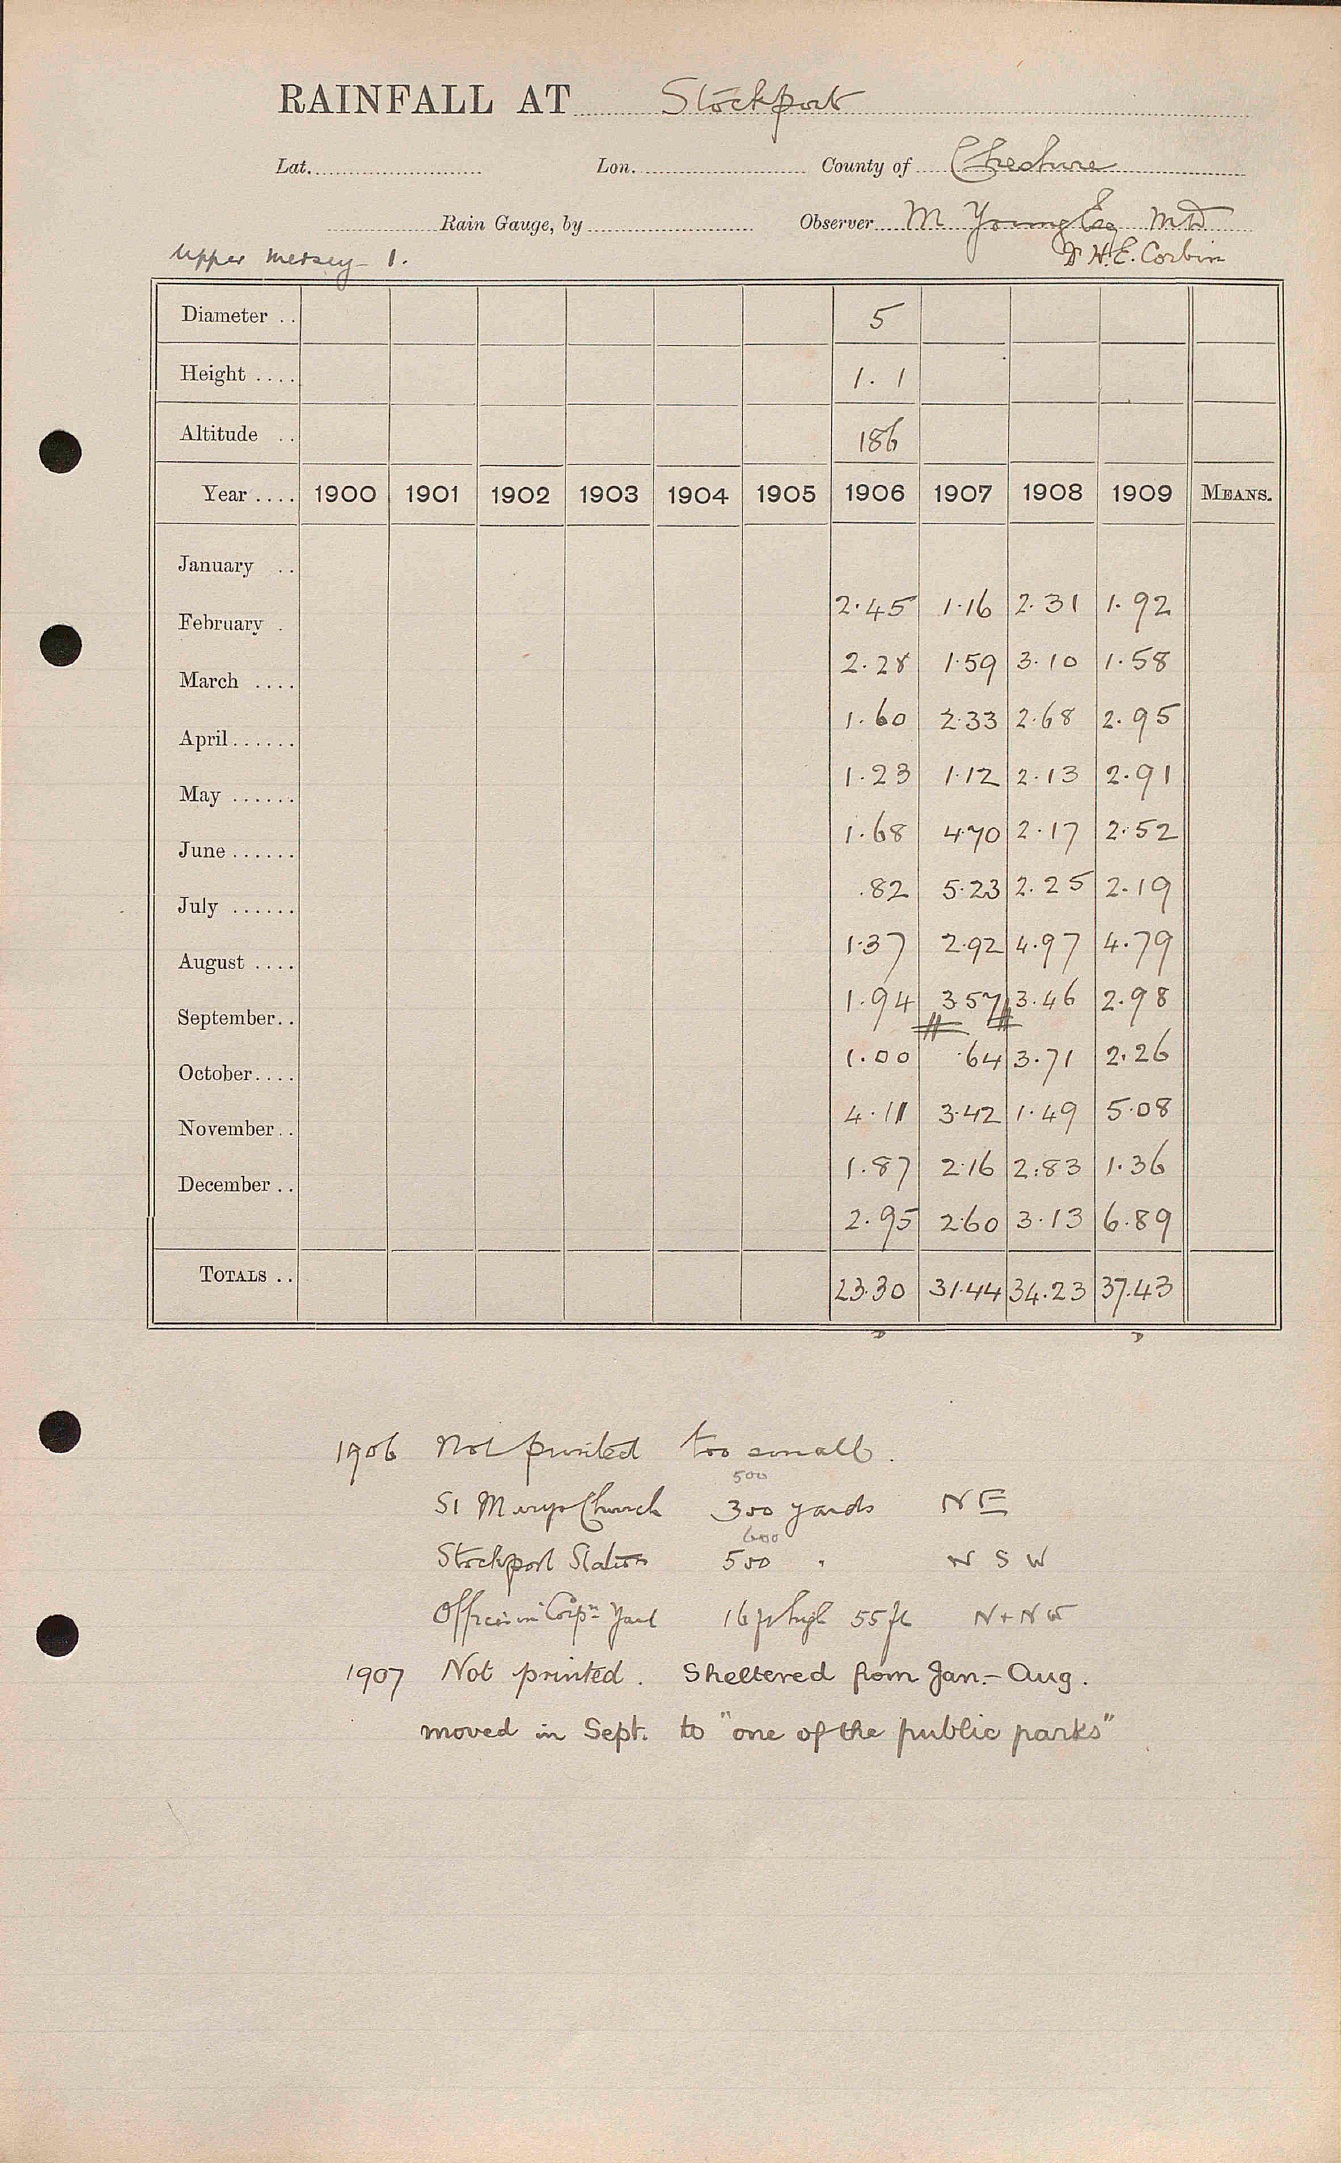 RAINFALL AT Stockport
Lat. Lon. County of Cheshire
Rain Gauge, by Observer M Young Esq MD
Upper Mersey 1. Dr H. E. Corbin
Diameter .. 5
Height .... 1.1
Altitude .. 186
Year .... 1900 1901 1902 1903 1904 1905 1906 1907 1908 1909 MEANS.
January ..
2.45 1.16 2.31 1.92
February .
2.28 1.59 3.10 1.58
March ....
1.60 2.33 2.68 2.95
April ......
1.23 1.12 2.13 2.91
May ......
1.68 4.70 2.17 2.52
June ......
.82 5.23 2.25 2.19
July ......
1.37 2.92 4.97 4.79
August ....
1.94 3.57 3.46 2.98
September..
1.00 .64 3.71 2.26
October....
4.11 3.42 1.49 5.08
November..
1.87 2.16 2.83 1.36
December ..
2.95 2.60 3.13 6.89
TOTALS .. 23.30 31.44 34.23 37.43
D D
1906 Not printed too small.
500
St Marys Church 300 yards NE
600
Stockport Station 500 " W S W
Offices in Corpn Yard 16 ft high 55 ft N + NW
1907 Not printed. Sheltered from Jan.- Aug.
moved in Sept. to "one of the public parks"